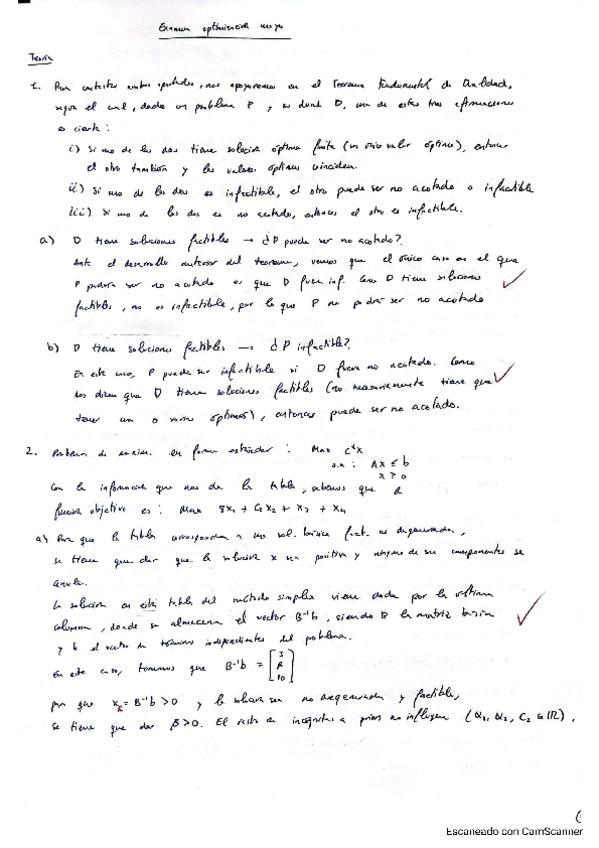 Examen optimización mayo
Teoría
1. Para contestar ambos apartados, nos apoyaremos en el Teorema Fundamental de Dualidad,
según el cual, dado un problema P y su dual D, una de estas tres afirmaciones
es cierta:
i) Si uno de los dos tiene solución óptima finita (un único valor óptimo), entonces
el otro también y los valores óptimos coinciden.
ii) Si uno de los dos es infactible, el otro puede ser no acotado o infactible
iii) Si uno de los dos es no acotado, entonces el otro es infactible.
a) D tiene soluciones factibles → ¿P puede ser no acotado?
Ante el desarrollo anterior del teorema, vemos que el único caso en el que
P podría ser no acotado es que D fuera inf. Como D tiene soluciones
factibles, no es infactible, por lo que P no podrá ser no acotado
b) D tiene soluciones factibles → ¿P infactible?
En este caso, P puede ser infactible si D fuera no acotado. Como
nos dicen que D tiene soluciones factibles (no necesariamente tiene que
tener un o varios óptimos), entonces puede ser no acotado.
2. Problema de maxim. en forma estándar: Max cᵗx
s.a: Ax ≤ b
x ≥ 0
Con la información que nos da la tabla, sabemos que la
función objetivo es: Max 8x₁ + C₂x₂ + x₃ + x₄
a) Para que la tabla corresponda a una sol. básica fact. no degenerada,
se tiene que dar que la solución x sea positiva y ninguna de sus componentes se
anule.
La solución en esta tabla del método simplex viene dada por la última
columna, donde se almacena el vector B⁻¹b, siendo B la matriz básica
y b el vector de términos independientes del problema.
En este caso, tenemos que B⁻¹b = [3 β 10]
para que x_B = B⁻¹b > 0 y la solución sea no degenerada y factible,
se tiene que dar β > 0. El resto de incógnitas a priori no influyen (α₁, α₂, C₂ ∈ ℝ).
Escaneado con CamScanner